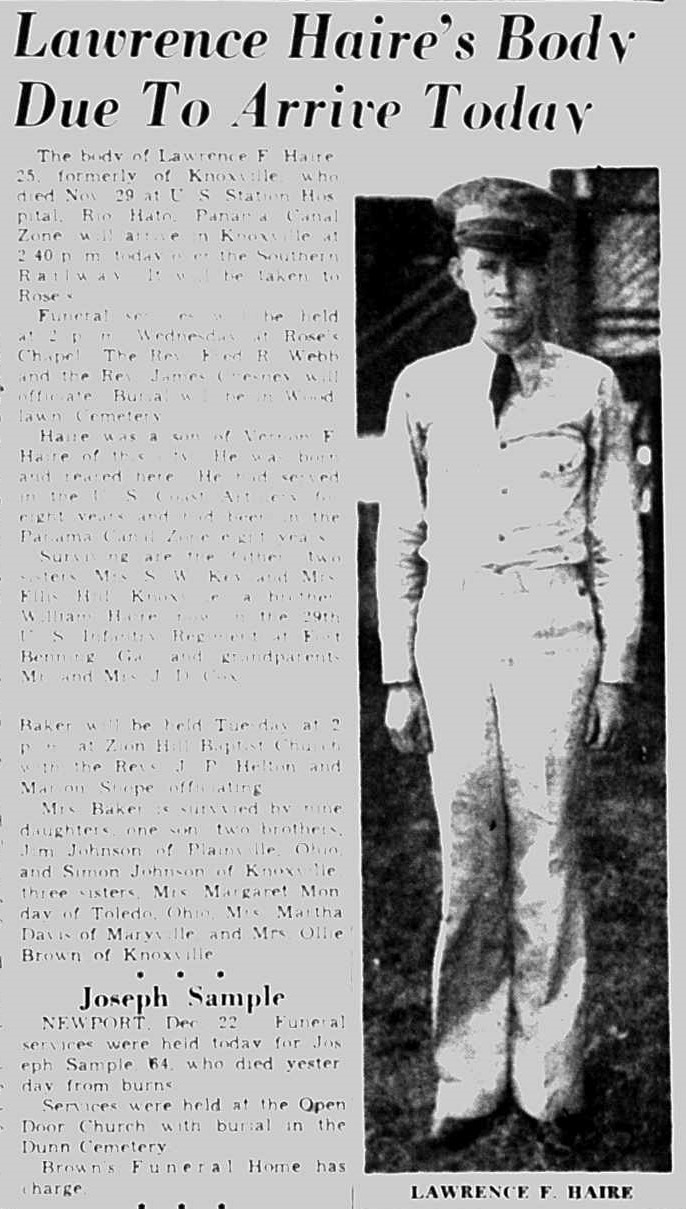 Lawrence Haire's Body
Due To Arrive Today
The body of Lawrence F. Haire
25, formerly of Knoxville, who
died Nov. 29 at U S Station Hos
pital, Rio Hato, Panama Canal
Zone will arrive in Knoxville at
2 40 p m today over the Southern
Railway. It will be taken to
Rose's
Funeral services will be held
at 2 p. m. Wednesday at Rose's
Chapel. The Rev. Fred R. Webb
and the Rev. James Cresney will
officiate. Burial will be in Wood
lawn Cemetery
Haire was a son of Vernon F.
Haire of this city. He was born
and reared here. He had served
in the U. S. Coast Artillery for
eight years and had been in the
Panama Canal Zone eight years
Surviving are the father, two
sisters, Mrs. S. W. Key and Mrs.
Ellis Hill, Knoxville, a brother
William Haire, now in the 29th
U. S. Infantry Regiment at Fort
Benning, Ga., and grandparents
Mr. and Mrs. J. D. Cox
Baker will be held Tuesday at 2
p. m. at Zion Hill Baptist Church
with the Revs. J. P. Helton and
Marion officiating
Mrs. Baker is survived by nine
daughters, one son, two brothers,
Jim Johnson of Plainville, Ohio,
and Simon Johnson of Knoxville,
three sisters, Mrs. Margaret Mon
day of Toledo, Ohio, Mrs. Martha
Davis of Maryville, and Mrs. Ollie
Brown of Knoxville
Joseph Sample
NEWPORT, Dec. 22 Funeral
services were held today for Jos
eph Sample, 64, who died yester
day from burns
Services were held at the Open
Door Church with burial in the
Dunn Cemetery.
Brown's Funeral Home has
charge.
LAWRENCE F. HAIRE